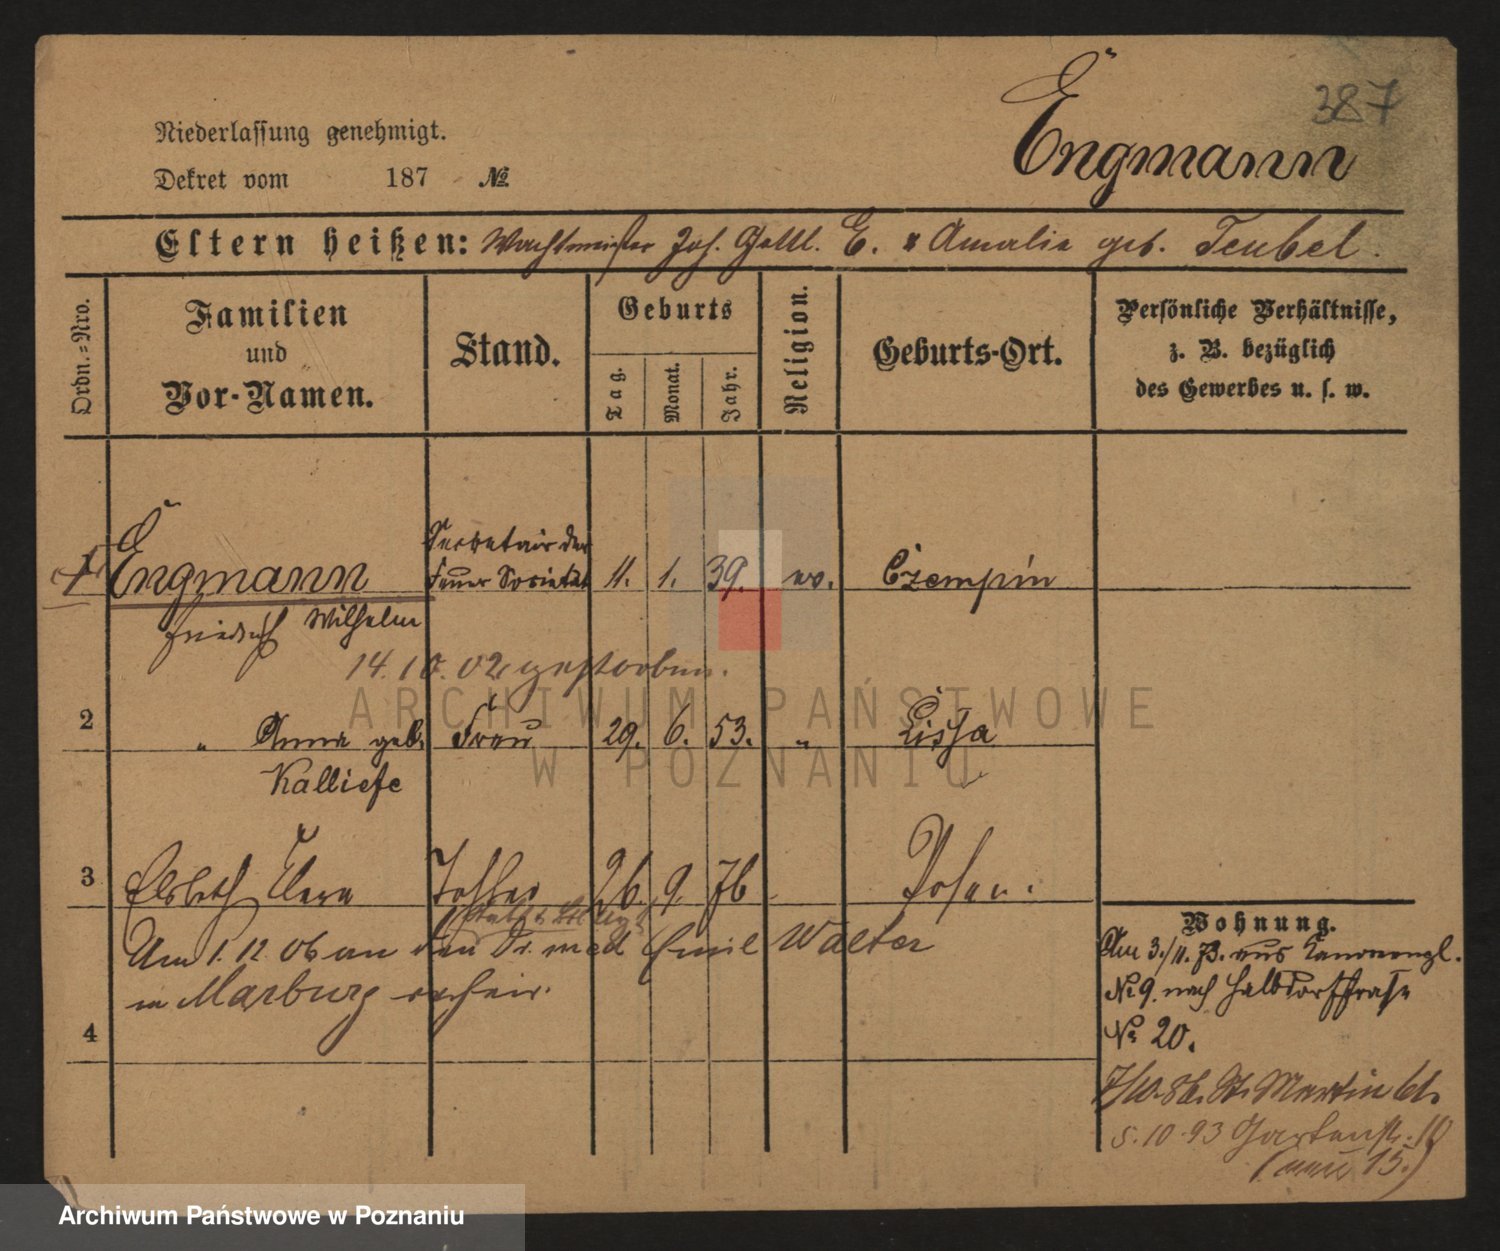 387
Engmann
Niederlassung genehmigt.
Dekret vom 187 №
Eltern heißen: Wachtmeister Joh. Gottl. E. u Amalie geb. Teubel.
Ordn.-Nro.
Familien und Vor-Namen.
Stand.
Geburts
Tag.
Monat.
Jahr.
Religion.
Geburts-Ort.
Persönliche Verhältnisse,
z. B. bezüglich
des Gewerbes u. s. w.
1 Engmann Secretair der Feuer Societät 11. 1. 39. ev. Czempin
Friedrich Wilhelm
14.10.02 gestorben.
2 " Anna geb. Frau 29. 6. 53. " Lissa
Kalliefe
3 Elsbeth Clara Tochter 26. 9. 76 Posen.
Am 1.12.06 an den Dr. med Emil Walter
in Marburg verheir.
4
Wohnung.
Am 3./11. 73. aus Kanonenpl.
№ 9. nach Halbdorfstraße
№ 20.
7/10. 86. St. Martin 61.
5.10.93 Gartenstr. 10
(neu 15.)
ARCHIWUM PAŃSTWOWE
W POZNANIU
Archiwum Państwowe w Poznaniu